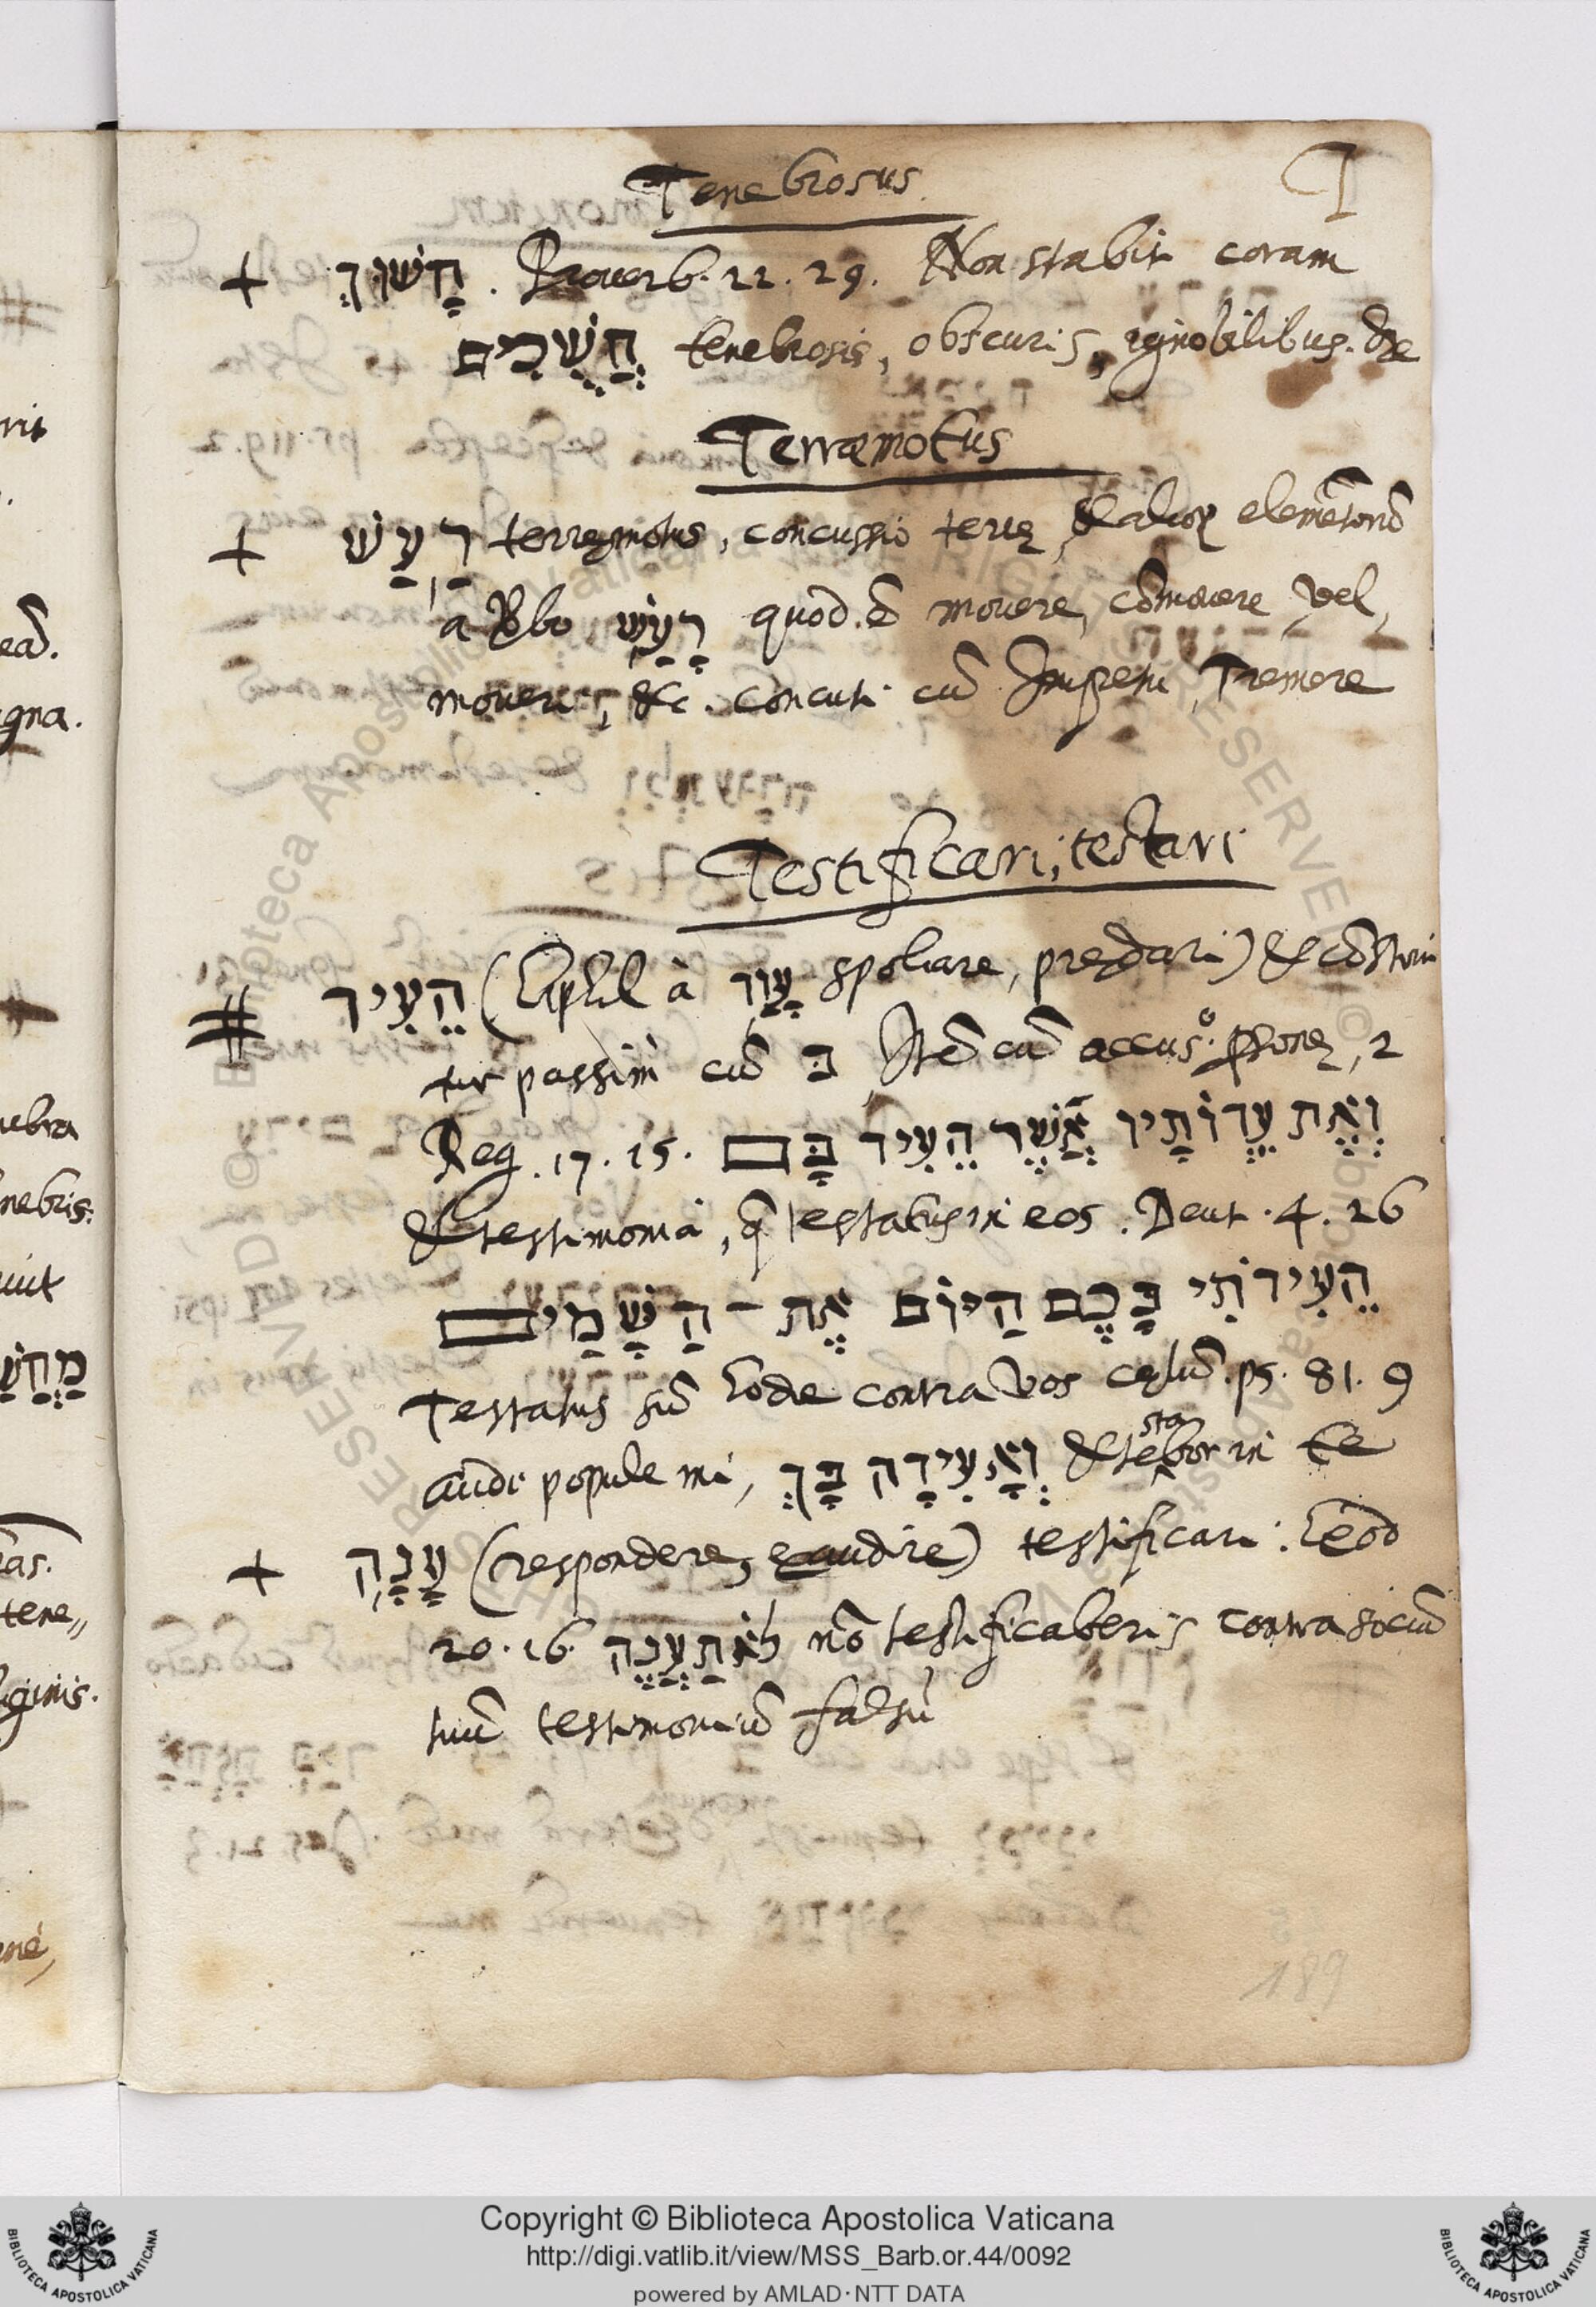 T
Tenebrosus
+ חָשׁוּךְ. Proverb. 22. 29. Non stabit coram
חֲשֻׁכִּים tenebrosis, obscuris, ignobilibus. &c
Terræmotus
+ רַעַשׁ terręmotus, concussio terrę, & alioꝝ elemẽtorũ
à Vbo רָעַשׁ quod. ẽ movere, cõmovere vel,
moveri, &c. concuti cũ Impetu, Tremere
Testificari, testari
# הֵעִיד (hiphil à עָוַד spoliare, prędari) & cõstrui
tur passim cũ בּ Itẽ cũ accus.o psonę, 2
Reg. 17. 15. וְאֶת עֵדְוֹתָיו אֲשֶׁר הֵעִיד בָּם
& testimonia, q̃ testatus in eos. Deut. 4. 26
הַעִידֹתִי בָכֶם הַיּוֹם אֶת־הַשָּׁמַיִם
Testatus sũ hodie contra vos cęlũ. ps. 81. 9
audi popule mi, וְאָעִידָה בָּךְ & testabor in te
+ עָנָה (respondere, exaudire) testificari: Exod
20. 16. לֹא תַעֲנֶה nõ testificaberis contra sociũ
tuũ testimoniũ falsũ
189
Copyright © Biblioteca Apostolica Vaticana
http://digi.vatlib.it/view/MSS_Barb.or.44/0092
powered by AMLAD·NTT DATA